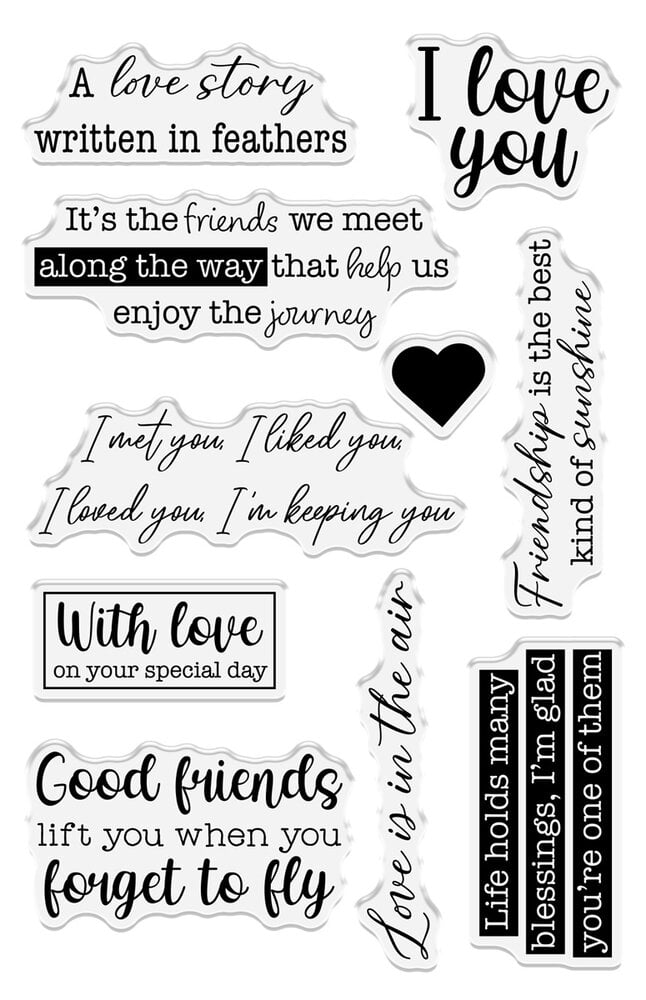 A love story
written in feathers
I love
you
It's the friends we meet
along the way that help us
enjoy the journey
Friendship is the best
kind of sunshine
I met you, I liked you,
I loved you, I'm keeping you
With love
on your special day
Love is in the air
Life holds many
blessings, I'm glad
you're one of them
Good friends
lift you when you
forget to fly